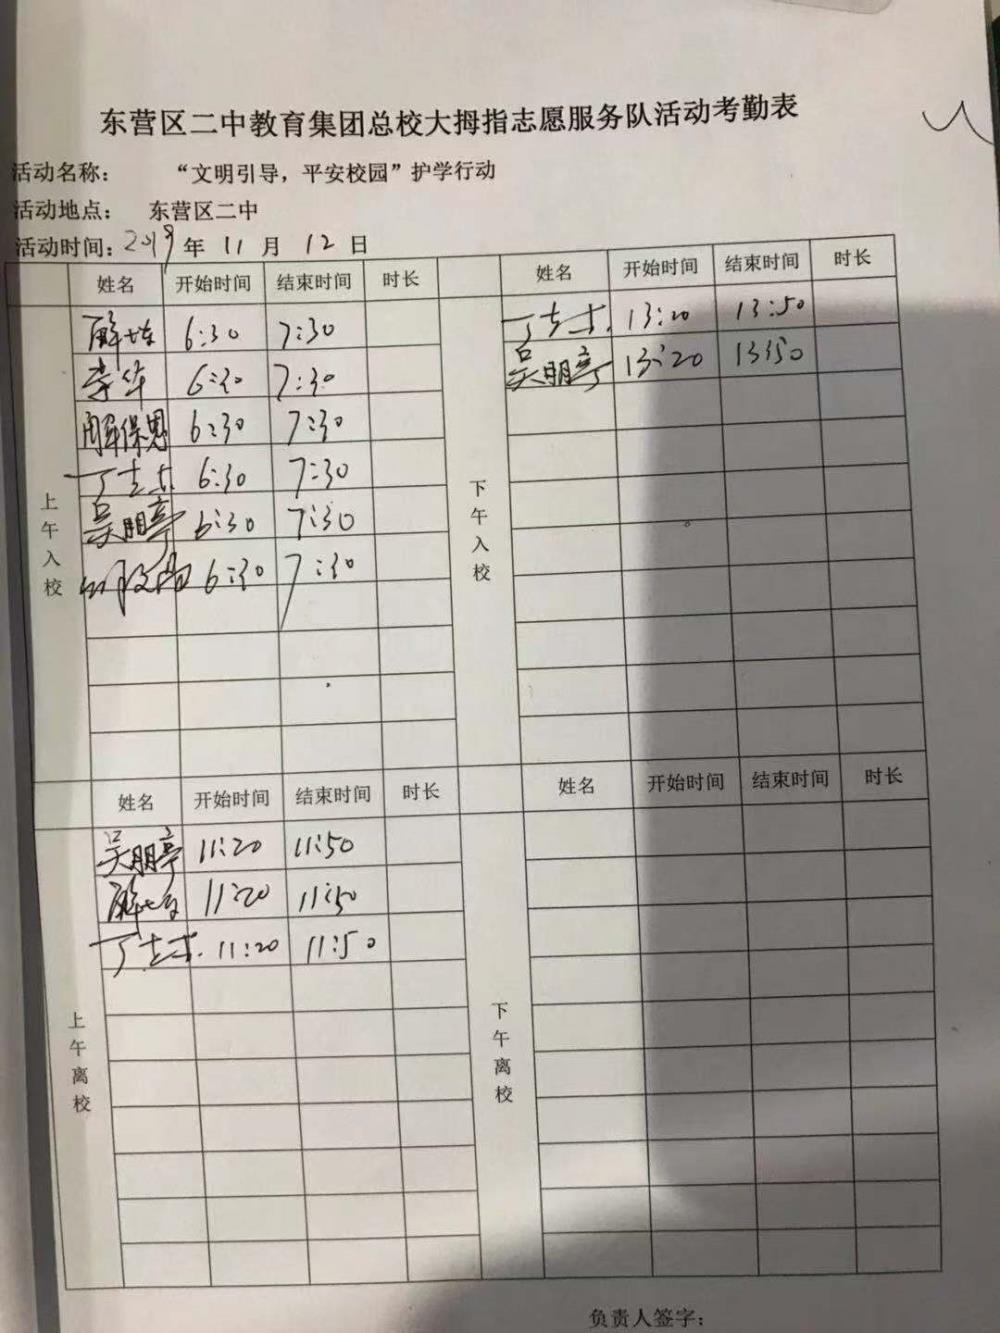 东营区二中教育集团总校大拇指志愿服务队活动考勤表
活动名称： “文明引导，平安校园”护学行动
活动地点： 东营区二中
活动时间：2019年11月12日
姓名 开始时间 结束时间 时长
上午入校
6:30 7:30
李华 6:30 7:30
解保恩 6:30 7:30
6:30 7:30
吴朋亭 6:30 7:30
6:30 7:30
姓名 开始时间 结束时间 时长
下午入校
13:20 13:50
吴朋亭 13:20 13:50
姓名 开始时间 结束时间 时长
上午离校
吴朋亭 11:20 11:50
11:20 11:50
11:20 11:50
姓名 开始时间 结束时间 时长
下午离校
负责人签字：